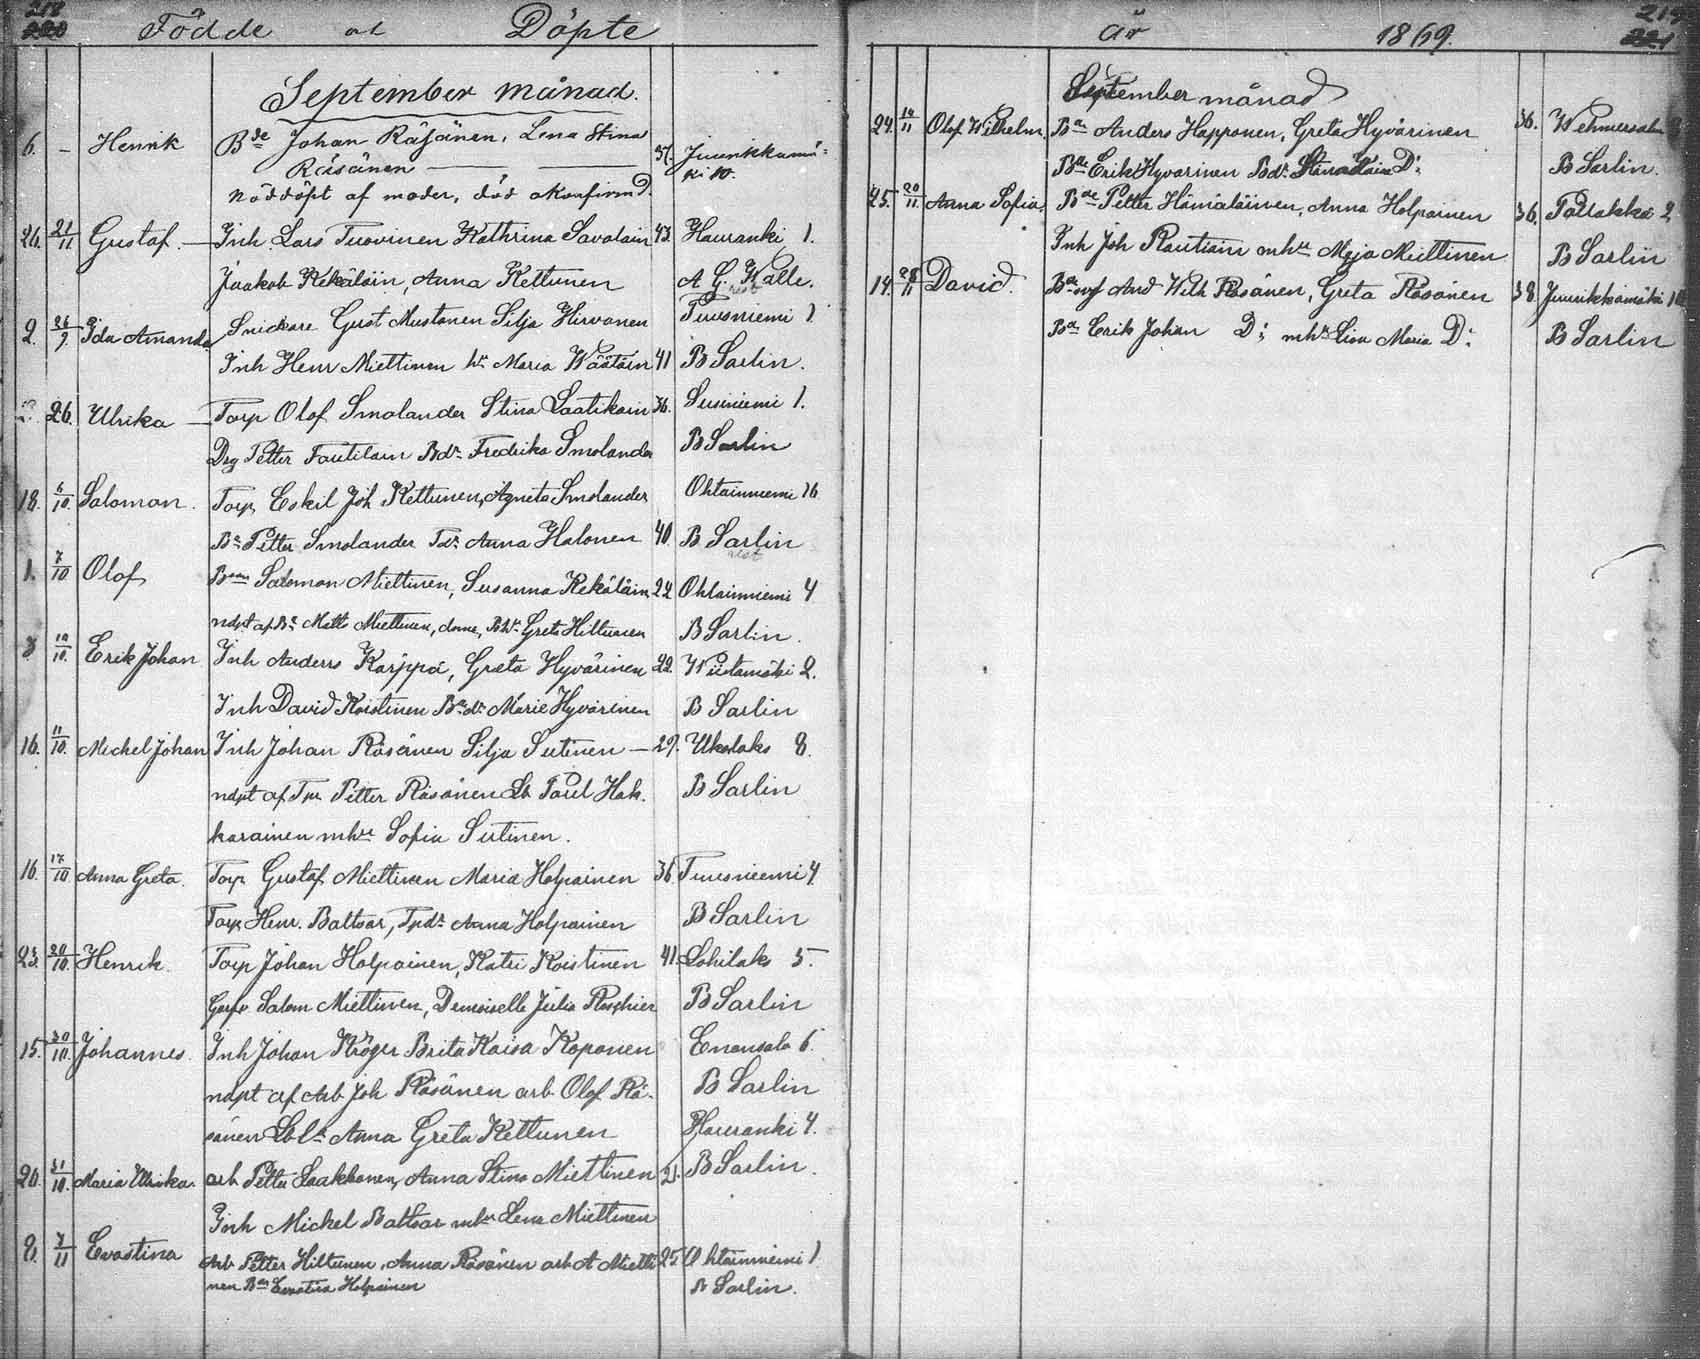 218
220
Födde at Döpte
September månad.
6. – Henrik Bde Johan Räsänen, Lena Stina 37. Juurikkamä-
Räsänen ki 10.
nöddöpt af moder, död okonfirmd.
26. 21/11 Gustaf. — Inh. Lars Tuovinen Kathrina Savolain 43. Hauranki 1.
Jaakob Kekäläin, Anna Kettunen A. G. Walle.
2. 26/9. Ida Amanda Snickare Gust Mustonen Silja Hirvonen Tuusniemi 1
Inh Henr Miettinen hu Maria Wäätäin 41 B Sarlin.
26. Ulrika — Torp Olof Smolander Stina Laatikain 36. Susiniemi 1.
Drg Petter Fautilain Bdr Fredrika Smolander B Sarlin
18. 6/10. Saloman. Torp Eskil Joh Kettunen, Agneta Smolander Ohtainniemi 16
Bn Petter Smolander Tdr Anna Halonen 40. B Sarlin
1. 7/10 Olof Bson Salomon Miettinen, Susanna Kekäläin 22 Ohtainniemi 4
ndpt af Bn Matts Miettinen, dome, Bhu Greta Hiltunen B Sarlin.
3 10/10. Erik Johan Inh Anders Karppa, Greta Hyvärinen 22. Wiitamäki 2.
Inh David Koistinen Bn dr Marie Hyvärinen B Sarlin
16. 11/10. Michel Johan Inh Johan Räsänen Silja Sutinen — 29. Ukolaks 8.
ndpt af Tpr Petter Räsänen Lb Paul Hak- B Sarlin
karainen mhu Sofia Sutinen.
16. 17/10 Anna Greta. Torp Gustaf Miettinen Maria Holpainen 36. Tuusniemi 4.
Torp Henr. Baltsar, Tpdr Anna Holpainen B Sarlin
23. 20/10. Henrik. Torp Johan Holpainen, Katri Koistinen 41. Lohilaks 5.
Salom Miettinen, Demoiselle Julia Roschier B Sarlin
15. 30/10. Johannes. Inh Johan Kröger Brita Kaisa Koponen Enonsalo 6.
ndpt af Arb Joh Räsänen arb Olof Rä- B Sarlin
sänen Anna Greta Kettunen Hauranki 4.
20. 31/10. Maria Ulrika. arb Petter Laakkonen, Anna Stina Miettinen 21. B Sarlin.
Inh Michel Baltsar mhu Lena Miettinen
8. 7/11 Evastina Arb Petter Hiltunen, Anna Räsänen arb A Mietti- 25. Ohtainniemi 1
nen Bn Evastina Holpainen B Sarlin.
219
221
år 1869.
September månad
24. 14/11 Olof Wilhelm. Bn Anders Happonen, Greta Hyvärinen 36. Wehmersalmi
Bn Erik Hyvärinen Bdr D: B Sarlin.
25. 20/11. Anna Sofia. Bde Petter Hämäläinen, Anna Holpainen 36. Pallakka 2.
Inh Joh Rautiain mhu Maja Miettinen B Sarlin
14. 28/11 David. And Wilh Räsänen, Greta Räsänen 38. Juurikkamäki 10
Bn Erik Johan D: mhu Lisa Maria D: B Sarlin